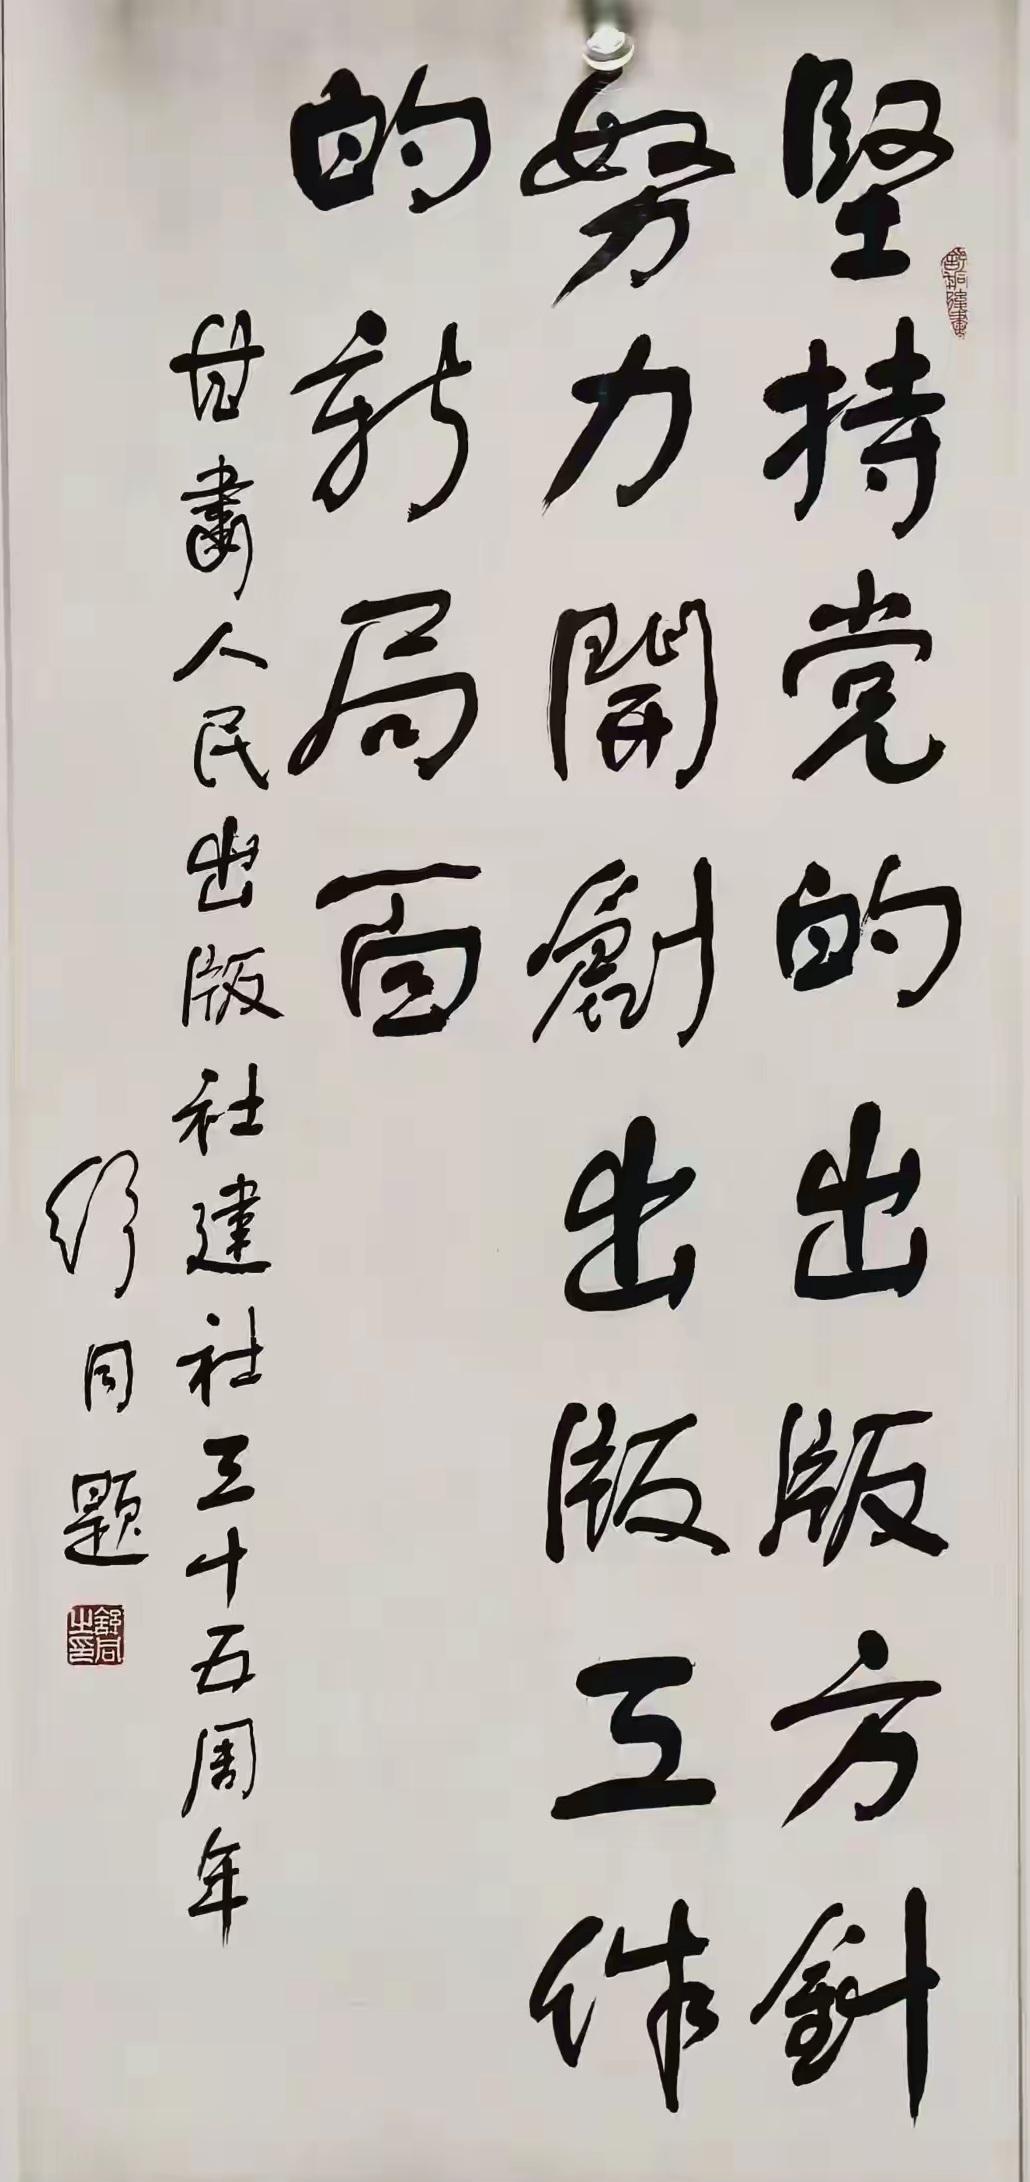 堅持党的出版方針
努力開創出版工作
的新局面
甘肅人民出版社建社三十五周年
舒同題
舒同之印